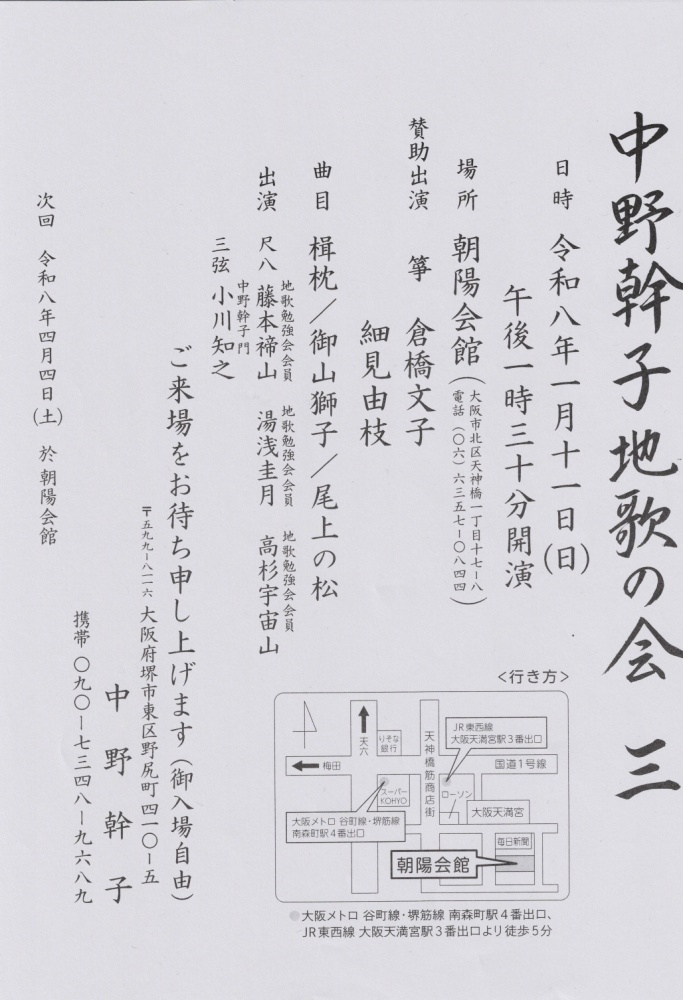 中野幹子地歌の会 三
日時 令和八年一月十一日(日)
午後一時三十分開演
場所 朝陽会館(大阪市北区天神橋一丁目十七ー八
電話(〇六)六三五七ー〇八四四)
賛助出演 箏 倉橋文子
細見由枝
曲目 楫枕/御山獅子/尾上の松
地歌勉強会会員 地歌勉強会会員 地歌勉強会会員
出演 尺八 藤本禘山 湯浅圭月 高杉宇宙山
中野幹子門
三弦 小川知之
ご来場をお待ち申し上げます(御入場自由)
〒五九九ー八一一六 大阪府堺市東区野尻町四一〇ー五
中野幹子
携帯 〇九〇ー七三四八ー九六八九
次回 令和八年四月四日(土) 於 朝陽会館
<行き方>
天六
りそな
銀行
天神橋筋商店街
JR東西線
大阪天満宮駅3番出口
梅田
国道1号線
スーパー
KOHYO
ローソン
大阪天満宮
大阪メトロ 谷町線・堺筋線
南森町駅4番出口
毎日新聞
朝陽会館
大阪メトロ 谷町線・堺筋線 南森町駅4番出口、
JR東西線 大阪天満宮駅3番出口より徒歩5分